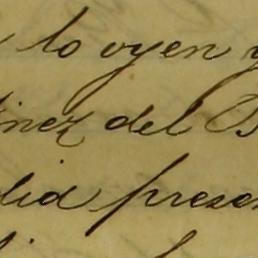 lo oyen y
inez del B
lid presen